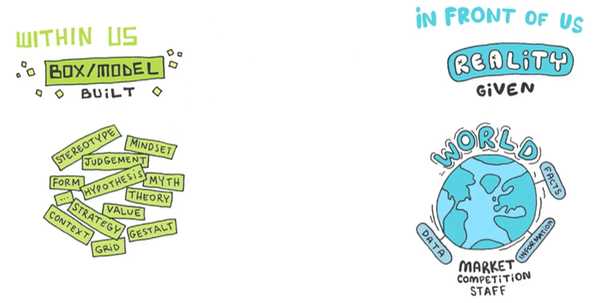 WITHIN US
BOX/MODEL
BUILT
STEREOTYPE
MINDSET
JUDGEMENT
FORM
HYPOTHESIS
MYTH
...
THEORY
STRATEGY
VALUE
CONTEXT
GESTALT
GRID
IN FRONT OF US
REALITY
GIVEN
WORLD
FACTS
DATA
INFORMATION
MARKET
COMPETITION
STAFF